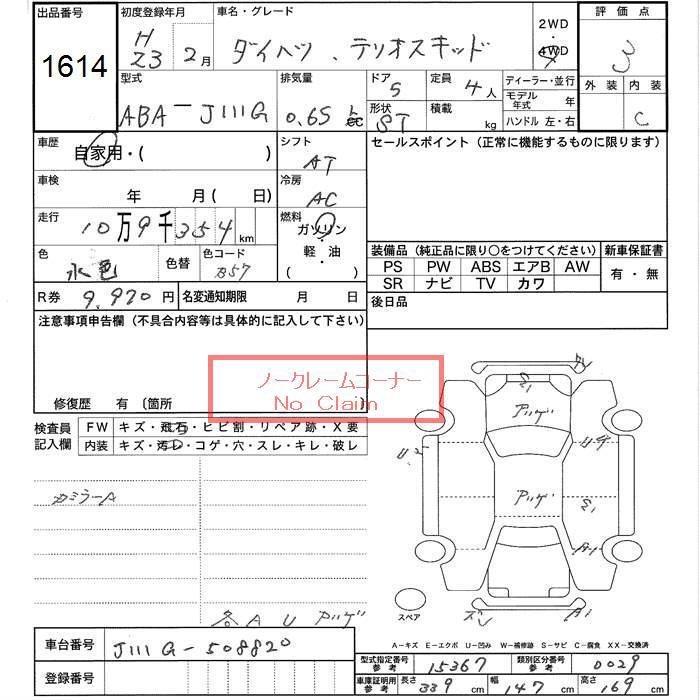 出品番号 初度登録年月 車名・グレード 2WD ・ 4WD 評価点
1614 H23 2月 ダイハツ、テリオスキッド 3
型式 排気量 ドア 5 定員 4人 ディーラー・並行 外装 内装
ABA-J111G 0.65 cc 形状 ST 積載 kg モデル年式 年 C
ハンドル 左・右
車歴 シフト セールスポイント (正常に機能するものに限ります)
自家用・( ) AT
車検 冷房
年 月(日) AC
走行 燃料
10万9千354km ガソリン
色 色替 色コード 軽・油 装備品(純正品に限り○をつけてください) 新車保証書
水色 B57 ( ) PS PW ABS エアB AW 有・無
R券 9,920円 名変通知期限 月 日 SR ナビ TV カワ
後日品
注意事項申告欄(不具合内容等は具体的に記入して下さい)
ノークレームコーナー
No Claim
修復歴 有 〔箇所 〕
検査員記入欄 FW キズ・飛石・ヒビ割・リペア跡・X要
内装 キズ・汚れ・コゲ・穴・スレ・キレ・破レ
カミラーA
各AU アゲ
アゲ
アゲ
A1
A1
スペア
A-キズ E-エクボ U-凹み W-補修跡 S-サビ C-腐食 XX-交換済
車台番号 J111G-508820
型式指定番号参考 15367 類別区分番号参考 0029
登録番号
車庫証明用参考 長さ 339cm 幅 147cm 高さ 169cm